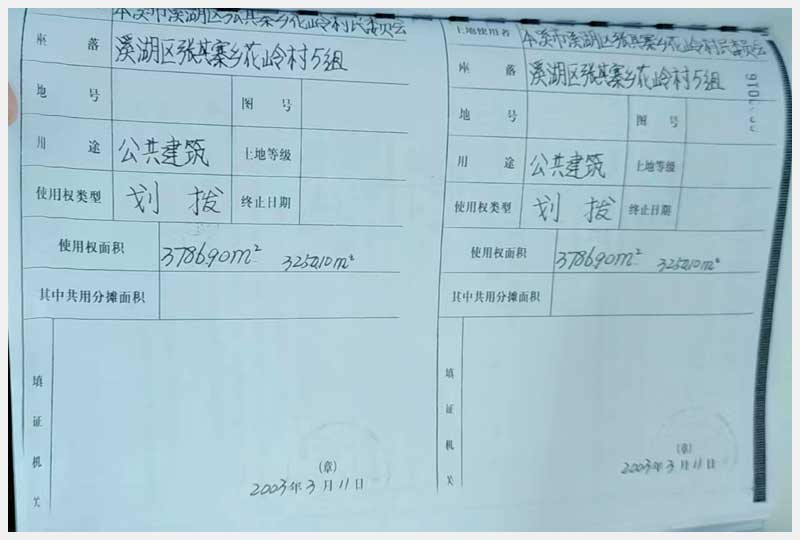 本溪市溪湖区张其寨乡花岭村民委员会
座 落 溪湖区张其寨乡花岭村5组
地 号 图 号
用 途 公共建筑 土地等级
使用权类型 划 拨 终止日期
使用权面积 3786.90m² 3252.10m²
其中共用分摊面积
填
证
机
关
(章)
2003年3月11日
土地使用者 本溪市溪湖区张其寨乡花岭村民委员会
座 落 溪湖区张其寨乡花岭村5组
地 号 图 号
用 途 公共建筑 土地等级
使用权类型 划 拨 终止日期
使用权面积 3786.90m² 3252.10m²
其中共用分摊面积
填
证
机
关
(章)
2003年3月11日